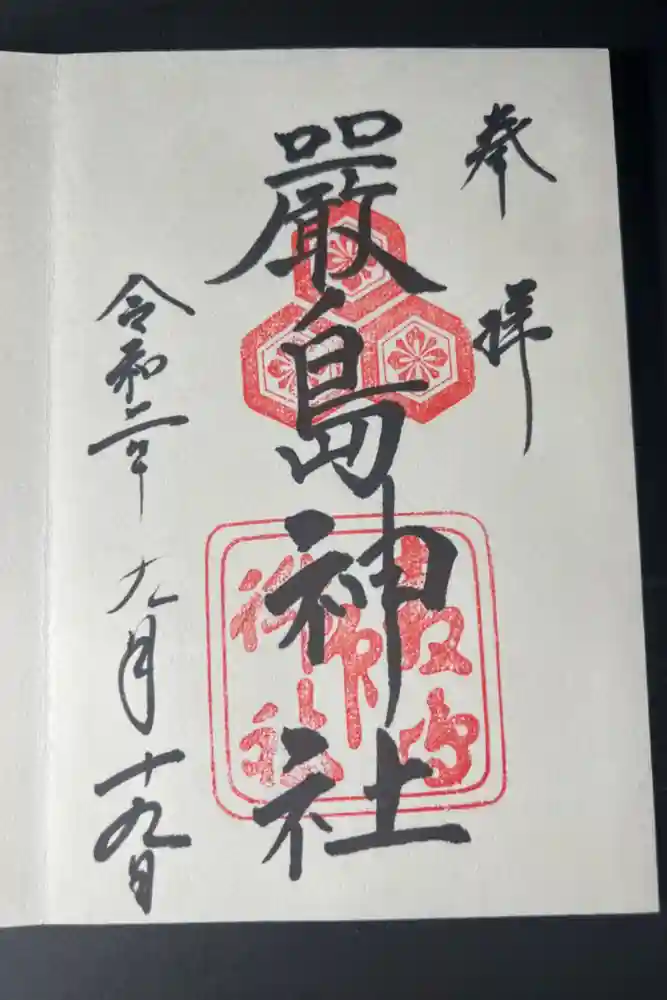 奉拝
嚴島神社
令和二年九月十九日